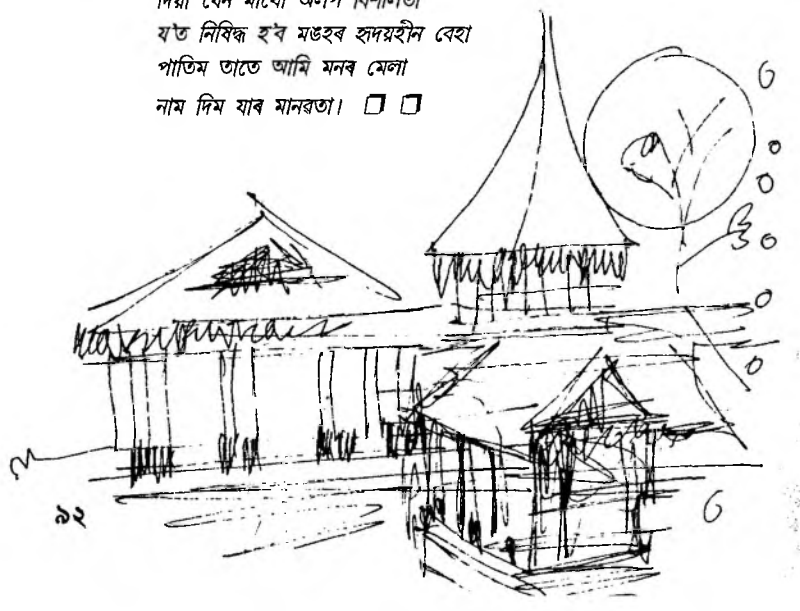 য'ত নিষিদ্ধ হ'ব মঙহৰ হৃদয়হীন বেহা
পাতিম তাতে আমি মনৰ মেলা
নাম দিম যাৰ মানৱতা। □ □
৯২